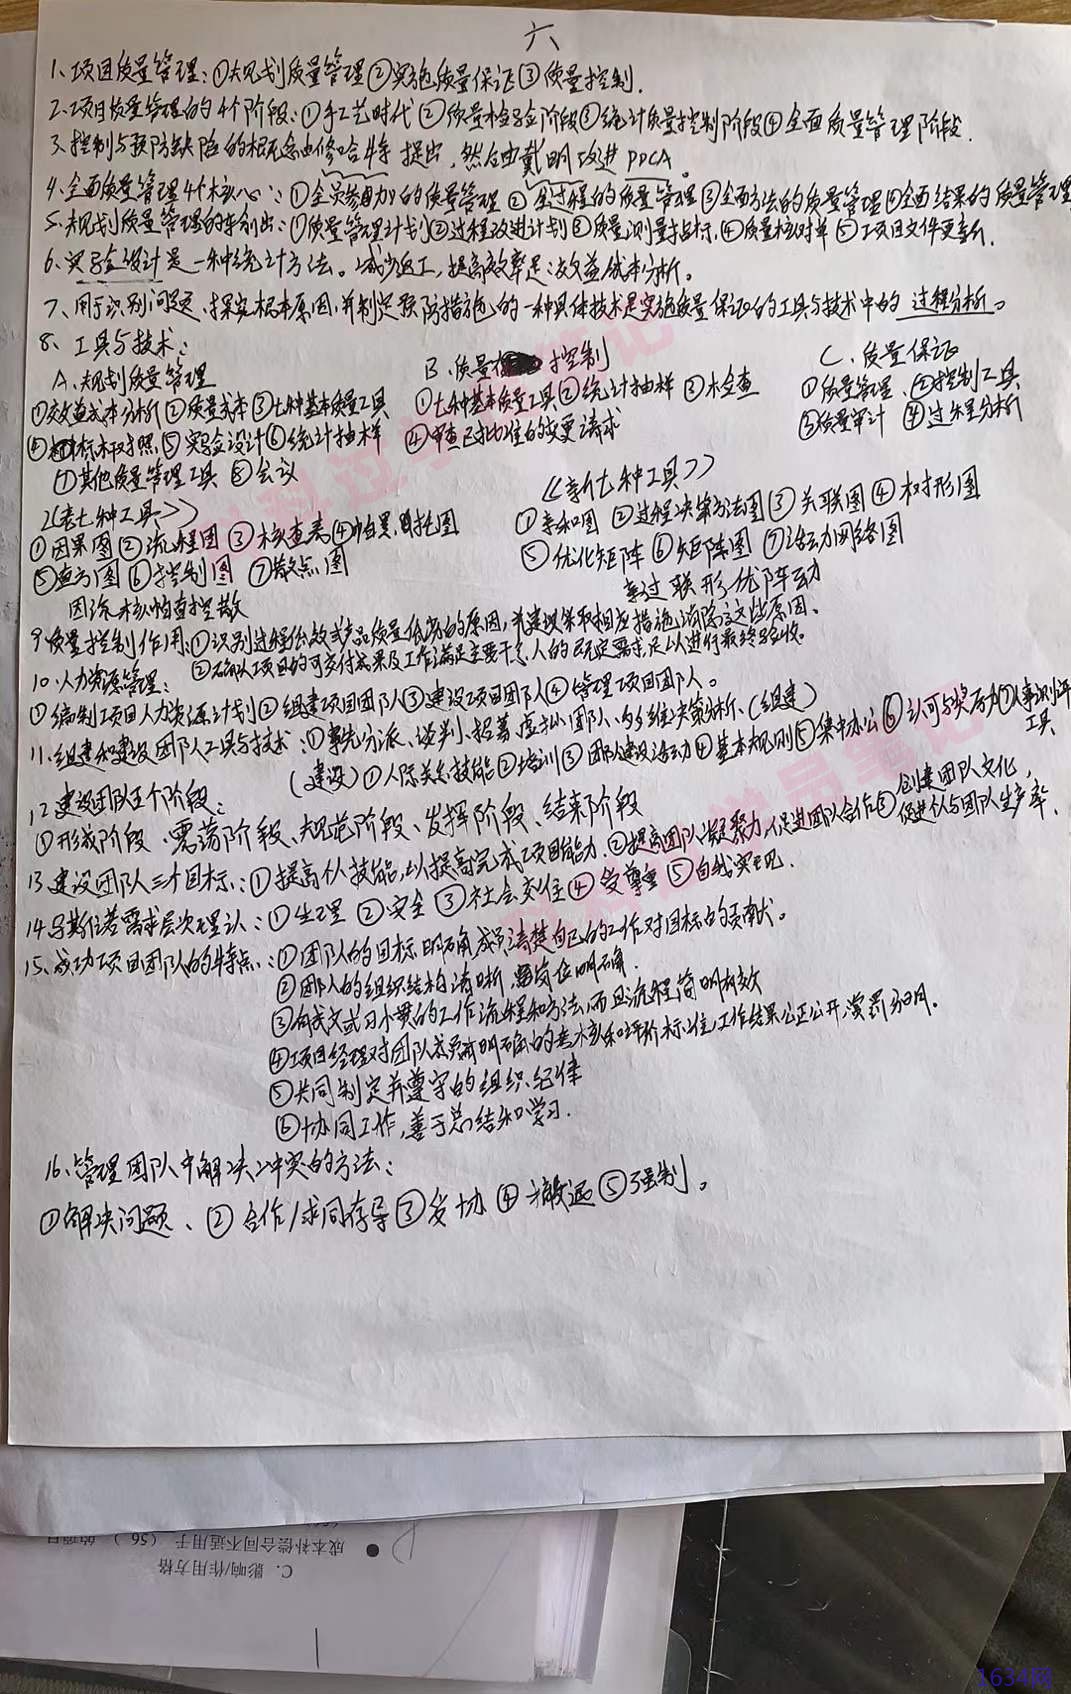 六
1、项目质量管理：①规划质量管理②实施质量保证③质量控制.
2、项目质量管理的4个阶段：①手工艺时代②质量检验阶段③统计质量控制阶段④全面质量管理阶段.
3、控制与预防缺陷的概念由修哈特提出，然后由戴明改进PDCA。
4、全面质量管理4个核心：①全员参加的质量管理②全过程的质量管理③全面方法的质量管理④全面结果的质量管理
5、规划质量管理的输出：①质量管理计划②过程改进计划③质量测量指标④质量核对单⑤项目文件更新.
6、实验设计是一种统计方法。减少返工，提高效率是效益成本分析。
7、用于识别问题、探究根本原因，并制定预防措施的一种具体技术是实施质量保证的工具与技术中的过程分析。
8、工具与技术：
A、规划质量管理
B、质量控制
C、质量保证
①效益成本分析②质量成本③七种基本质量工具
④标杆对照⑤实验设计⑥统计抽样
⑦其他质量管理工具⑧会议
①七种基本质量工具②统计抽样③检查
④审查已批准的变更请求
①质量管理、②控制工具
③质量审计④过程分析
《老七种工具》
①因果图②流程图③核查表④帕累托图
⑤直方图⑥控制图⑦散点图
因流核帕直控散
《新七种工具》
①亲和图②过程决策方法图③关联图④树形图
⑤优化矩阵⑥矩阵图⑦活动网络图
亲过联形优阵动
9、质量控制作用：①识别过程低效或产品质量低劣的原因，并建议采取相应措施消除这些原因、
②确认项目的可交付成果及工作满足主要干系人的既定需求足以进行最终验收。
10、人力资源管理：
①编制项目人力资源计划②组建项目团队③建设项目团队④管理项目团队。
11、组建和建设团队工具与技术：①事先分派、谈判、招募、虚拟团队、多维决策分析、（组建）
（建设）①人际关系技能②培训③团队建设活动④基本规则⑤集中办公⑥认可与奖励⑦人事测评工具
12 建设团队五个阶段：
①形成阶段、震荡阶段、规范阶段、发挥阶段、结束阶段
13 建设团队三个目标：①提高个人技能，以提高完成项目能力.②提高团队凝聚力，促进团队合作③创建团队文化，促进个人与团队生产率.
14 马斯洛需求层次理认：①生理②安全③社会交往④受尊重⑤自我实现.
15、成功项目团队的特点：①团队的目标明确成员清楚自己的工作对目标的贡献。
②团队的组织结构清晰，岗位明确.
③有成文或习惯的工作流程和方法，而且流程简明有效
④项目经理对团队成员有明确的考核和评价标准，工作结果公正公开，赏罚分明.
⑤共同制定并遵守的组织纪律
⑥协同工作，善于总结和学习.
16、管理团队中解决冲突的方法：
①解决问题、②合作/求同存异③妥协④撤退⑤强制。
成本补偿合同不适用于（56）的项目
C. 影响/作用方格
1634网